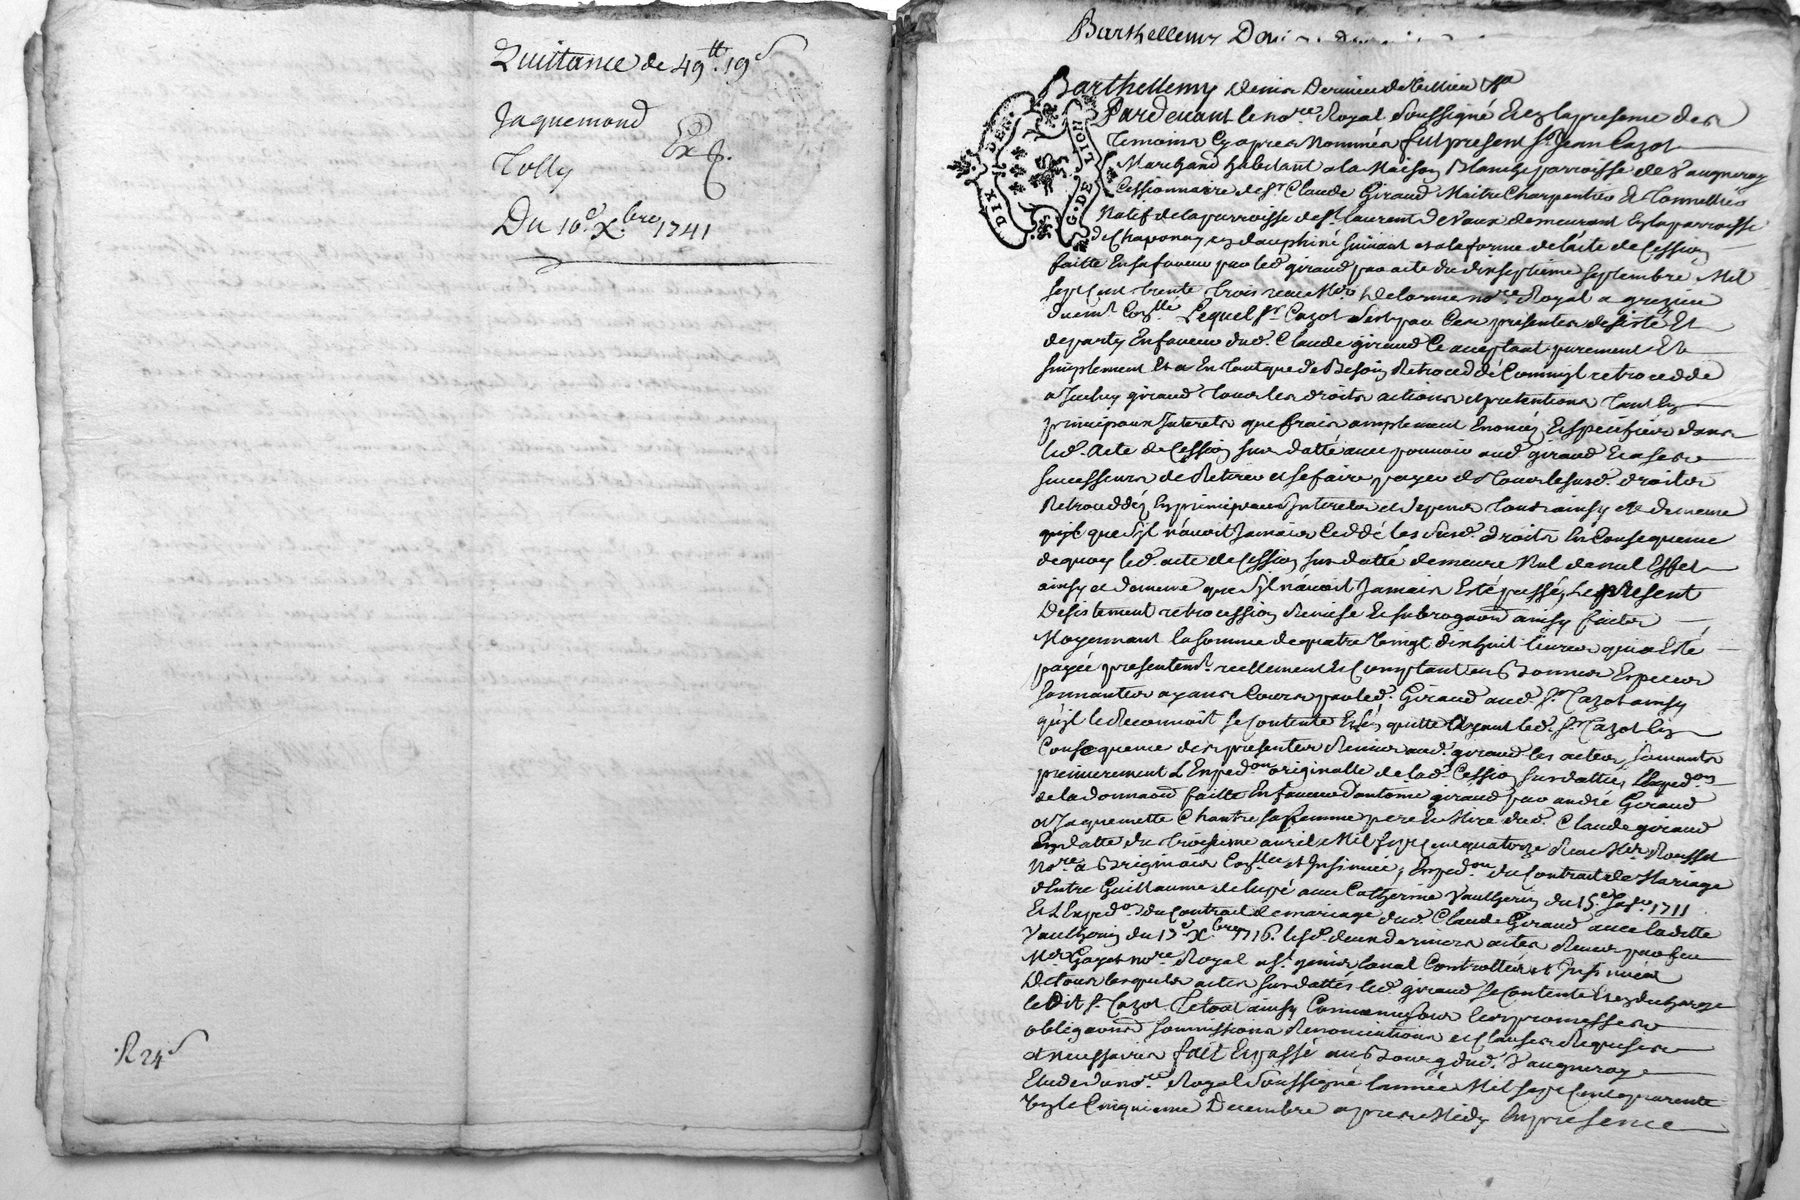 Quittance de 49tt. 19s
Jaquemond
Exp.
Tolly
Du 10e Xbre 1741
R 24s
Barthellemy Deni
Barthellemy Denis Dernier de Feullieu
DIX DEN. G. DE LION
Pardevant le nore Royal Soussigné et en la presence des
Temoins cy apres Nommés fut present Sr. Jean Cazot
Marchand habitant a la Maison Blanche parroisse de Vaugneray
Cessionnaire de Sr. Claude Giraud Maitre Charpentier et Tonnellier
Natif de la parroisse de St laurent de Vaux demeurant en la parroisse
de Chaponay en dauphiné suivant et a la forme de l'acte de Cession
faitte en sa faveur par led. giraud par acte du dixseptieme septembre Mil
sept cent trente trois receu Mre Delorme nore Royal a grezieu
duemt. Conllé. Lequel Sr. Cazot s'est par ces presentes desisté et
departy en faveur dud. Claude giraud ce acceptant purement et
simplement et a en tant que de Besoin Retroceddé Comme il retrocedde
aud. giraud tous les droits actions et pretentions tant en
principaux Interets que frais amplement enoncés et specifiés dans
led. acte de Cession sus datté avec pouvoir aud. giraud et a ses
successeurs de Retirer et se faire payer de tous les susd. droits
Retroceddéz en principaux Interets et depens tout ainsy et de meme
qu'il que s'il n'avoit Jamais ceddé les susd. droits en Consequence
de quoy led. acte de Cession sus datté demeure Nul de nul Effet
ainsy et de meme que s'il n'avoit Jamais Esté passé, Le present
Desistement retrocession Remise et subrogaon ainsy faites
Moyennant la somme de quatre Vingt dixhuit livres qui a Esté
payée presentemt. reellement et Comptant en Bonnes Especes
sonnantes ayans Cours par led. Giraud aud. Sr. Cazot ainsy
qu'il le Reconnoit se Contente et l'en quitte ayant led. Sr. Cazot en
Consequence des presentes Remis aud. giraud les actes suivants
premierement L'Expedon originalle de lad. Cession sus dattée, l'Exped.on
de la donnaon faitte en faveur d'antoine giraud par andré Giraud
et Jaquemette Chantre sa femme pere et Mere dud. Claude giraud
en datte du troisieme avril Mil sept cent quatorze Receu Mre Rousset
Nore a Brignais Conllée et Insinuée, Exped.on du Contrat de Mariage
d'Entre Guillaume delupé avec Catherine Vautherin du 15e Janr. 1711
Et L'Exped.on du Contrat de mariage dud. Claude Giraud avec laditte
Vautherin du 13e Xbre 1716. lesd. deux derniers actes Receus par feu
Me Gayet nore Royal a St. genis laval Controllés et Insinués
De tous lesquels actes sus dattés led. giraud se Contente et en decharge
ledit Sr. Cazot Le tout ainsy Convenu sous les promesses
obligaons soumissions Renonciations et Clauses Requises
et necessaires fait et passé au Bourg dud. Vaugneray
Etude du nore Royal Soussigné l'année Mil sept cent quarente
Un le Cinquieme Decembre apres Midy En presence